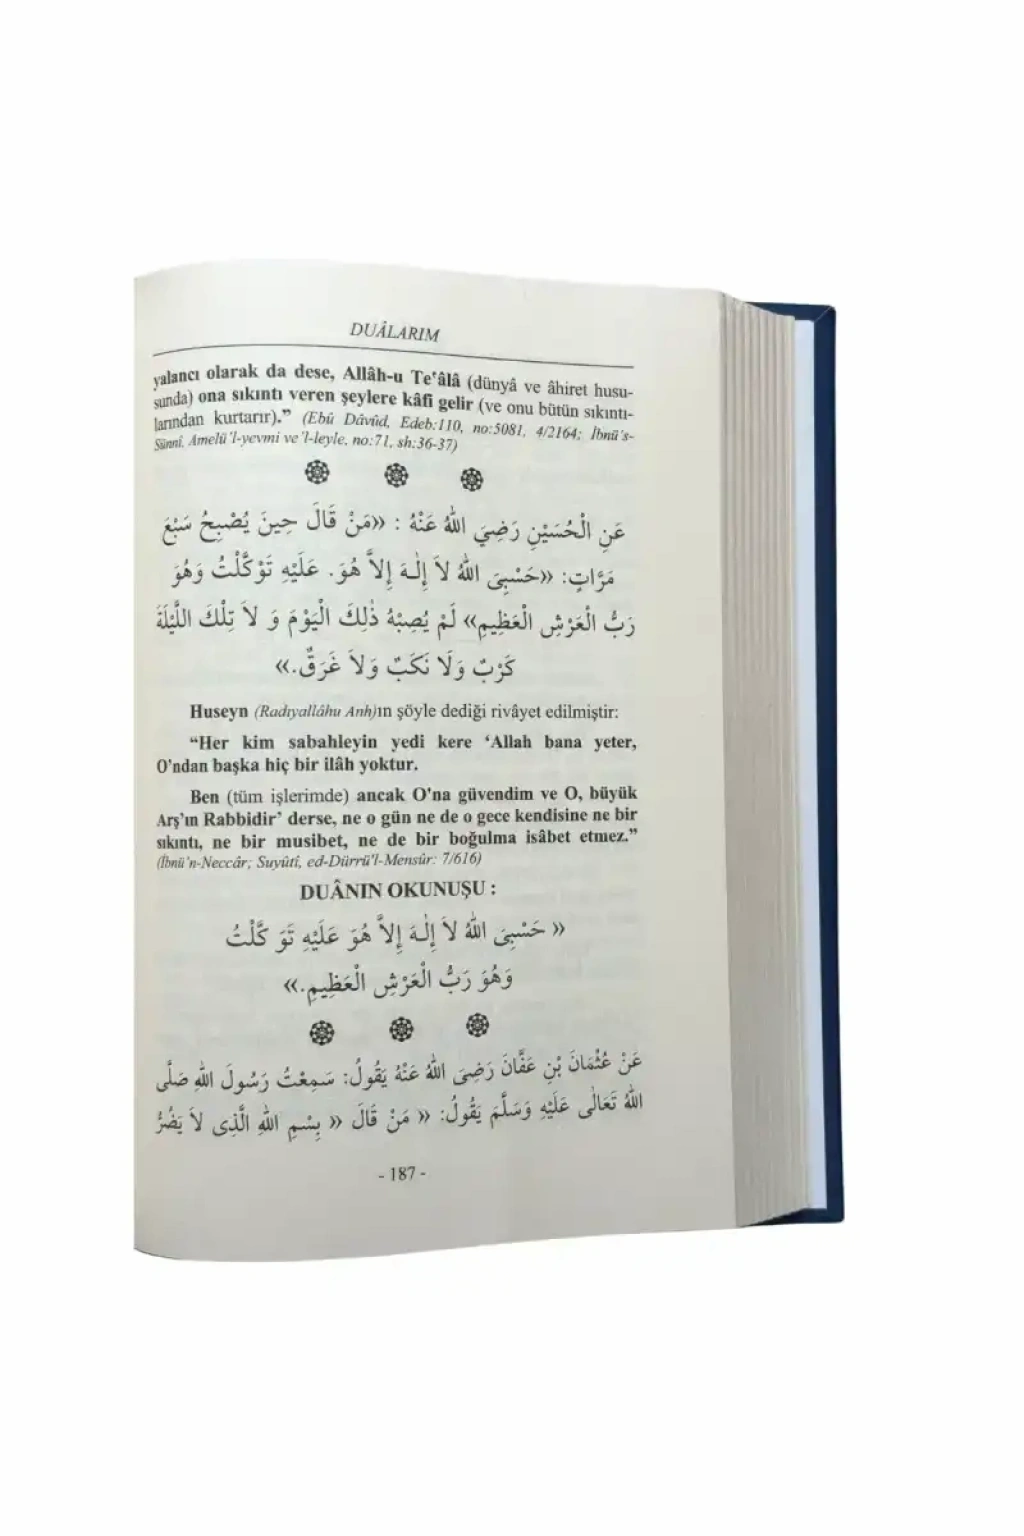 DUÂLARIM
yalancı olarak da dese, Allâh-u Te'âlâ (dünyâ ve âhiret husu-
sunda) ona sıkıntı veren şeylere kâfî gelir (ve onu bütün sıkıntı-
larından kurtarır)." (Ebû Dâvûd, Edeb:110, no:5081, 4/2164; İbnü's-
Sünnî, Amelü'l-yevmi ve'l-leyle, no:71, sh:36-37)
عَنِ الْحُسَيْنِ رَضِيَ اللهُ عَنْهُ : «مَنْ قَالَ حِينَ يُصْبِحُ سَبْعَ
مَرَّاتٍ: «حَسْبِيَ اللهُ لاَ إِلٰهَ إِلاَّ هُوَ. عَلَيْهِ تَوَكَّلْتُ وَهُوَ
رَبُّ الْعَرْشِ الْعَظِيمِ» لَمْ يُصِبْهُ ذٰلِكَ الْيَوْمَ وَ لاَ تِلْكَ اللَّيْلَةَ
كَرْبٌ وَلَا نَكَبٌ وَلاَ غَرَقٌ.»
Huseyn (Radıyallâhu Anh)ın şöyle dediği rivâyet edilmiştir:
"Her kim sabahleyin yedi kere 'Allah bana yeter,
O'ndan başka hiç bir ilâh yoktur.
Ben (tüm işlerimde) ancak O'na güvendim ve O, büyük
Arş'ın Rabbidir' derse, ne o gün ne de o gece kendisine ne bir
sıkıntı, ne bir musibet, ne de bir boğulma isâbet etmez."
(İbnü'n-Neccâr; Suyûtî, ed-Dürrü'l-Mensûr: 7/616)
DUÂNIN OKUNUŞU :
« حَسْبِيَ اللهُ لاَ إِلٰهَ إِلاَّ هُوَ عَلَيْهِ تَوَ كَّلْتُ
وَهُوَ رَبُّ الْعَرْشِ الْعَظِيمِ.»
عَنْ عُثْمَانَ بْنِ عَفَّانَ رَضِيَ اللهُ عَنْهُ يَقُولُ: سَمِعْتُ رَسُولَ اللهِ صَلَّى
اللهُ تَعَالٰى عَلَيْهِ وَسَلَّمَ يَقُولُ: « مَنْ قَالَ « بِسْمِ اللهِ الَّذِى لاَ يَضُرُّ
- 187 -